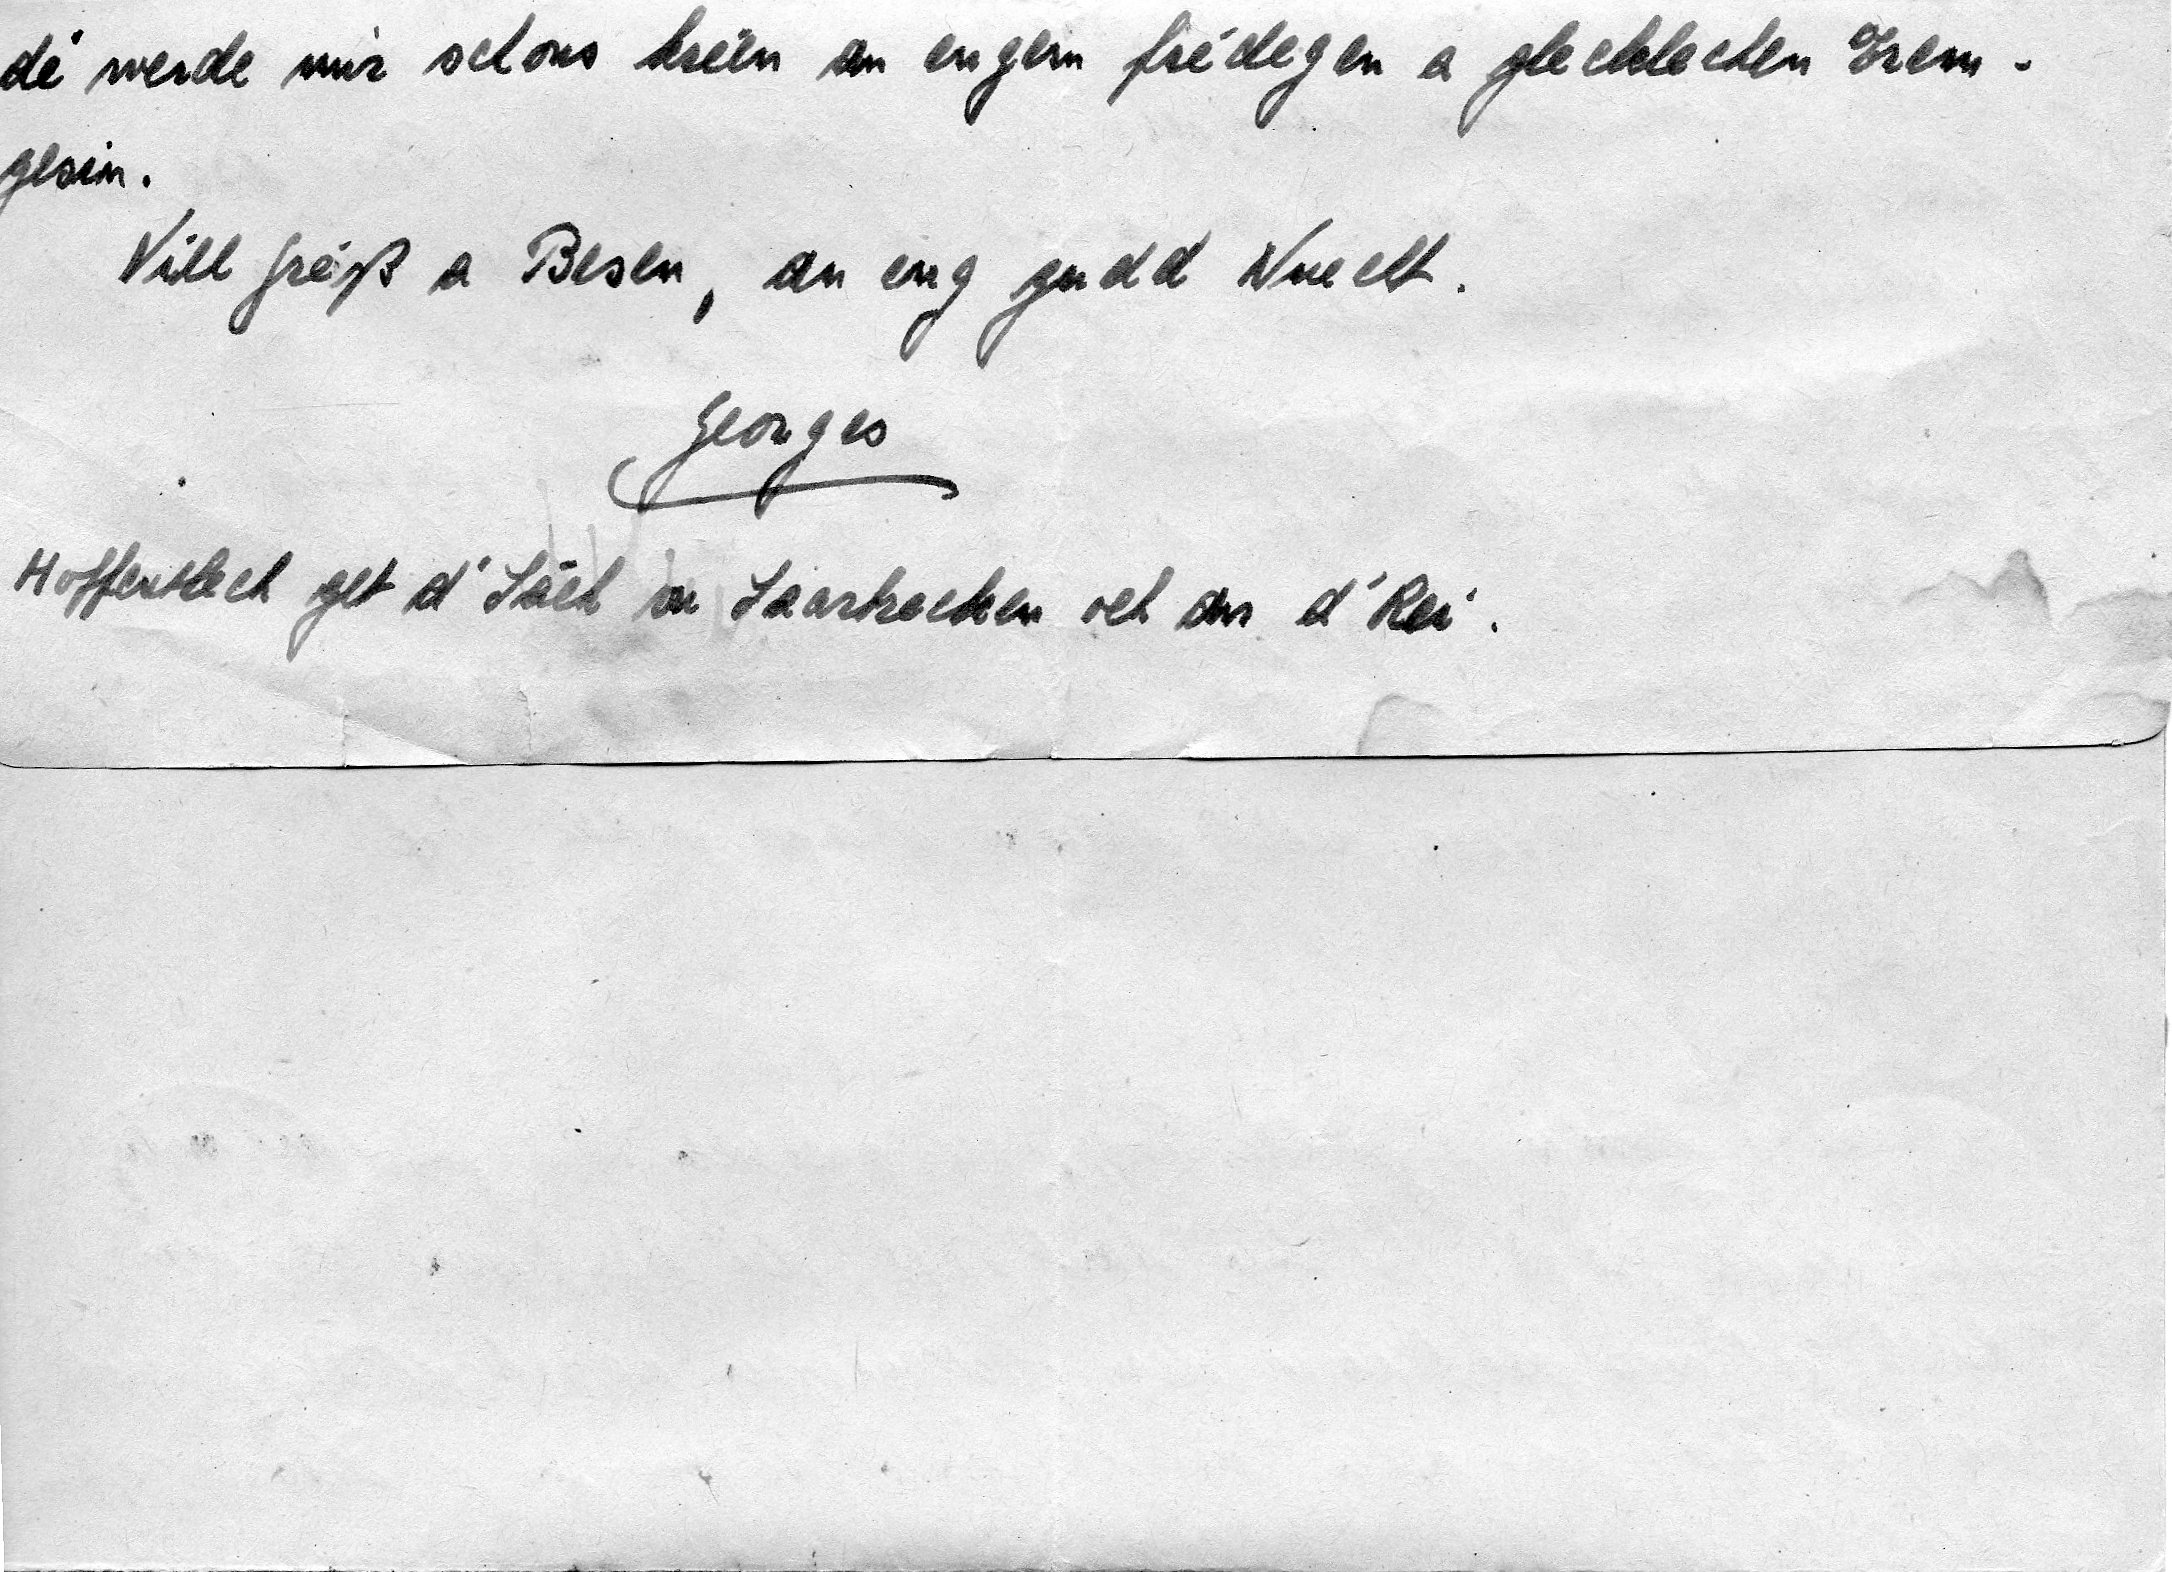 dé werde mir schons kréien an engem frédegen a glecklechen Erem-
gesin.
Vill Gréiß a Besen, an eng gudd Nuecht.
Georges
Hoffentlech get d'Säch vu Saarbrecken och an d'Rei.